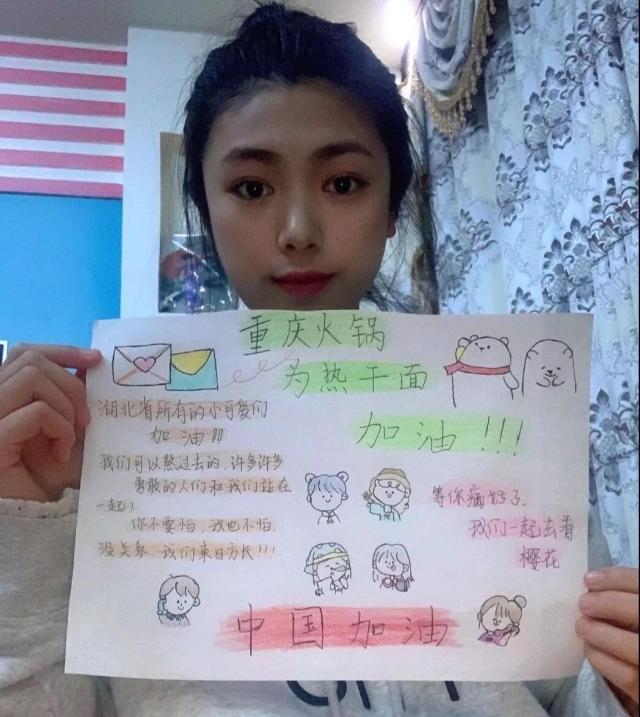 重庆火锅
为热干面
加油!!!
湖北省所有的小可爱们
加油!!!
我们可以熬过去的,许多许多
勇敢的人们和我们站在
一起!
你不要怕,我也不怕.
没关系,我们来日方长!!!
等你病好了,
我们一起去看
樱花
中国加油